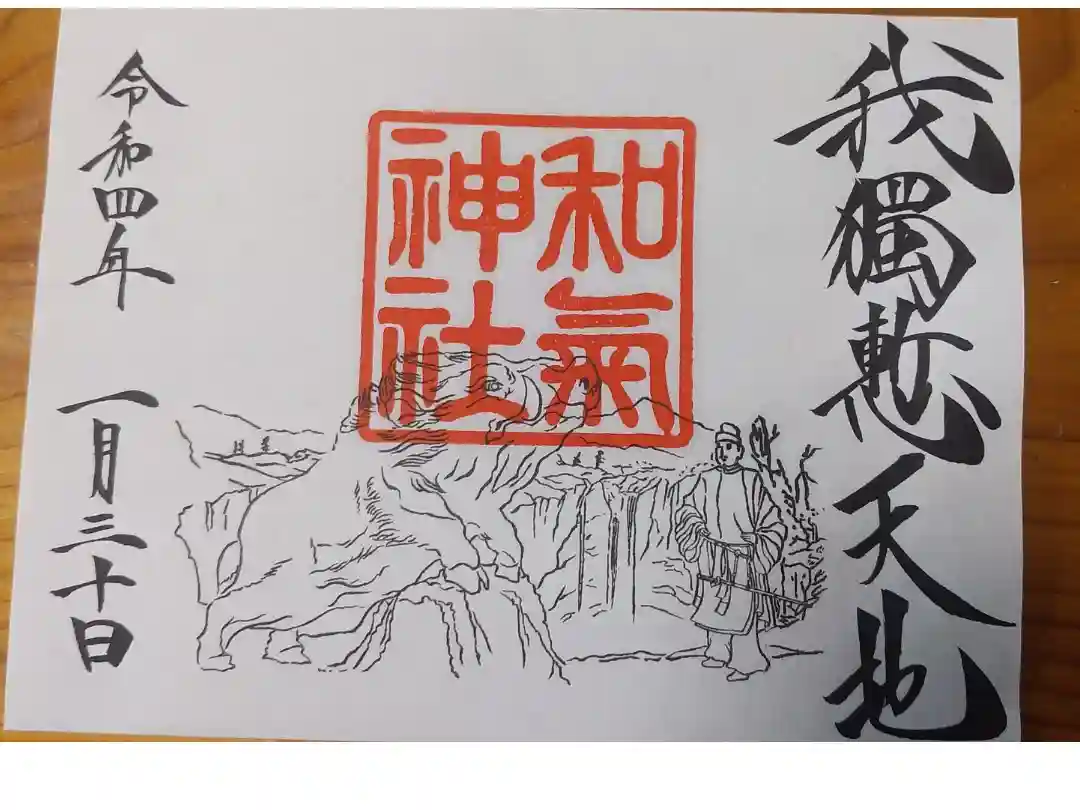 我獨慙天地
和氣
神社
令和四年一月三十日